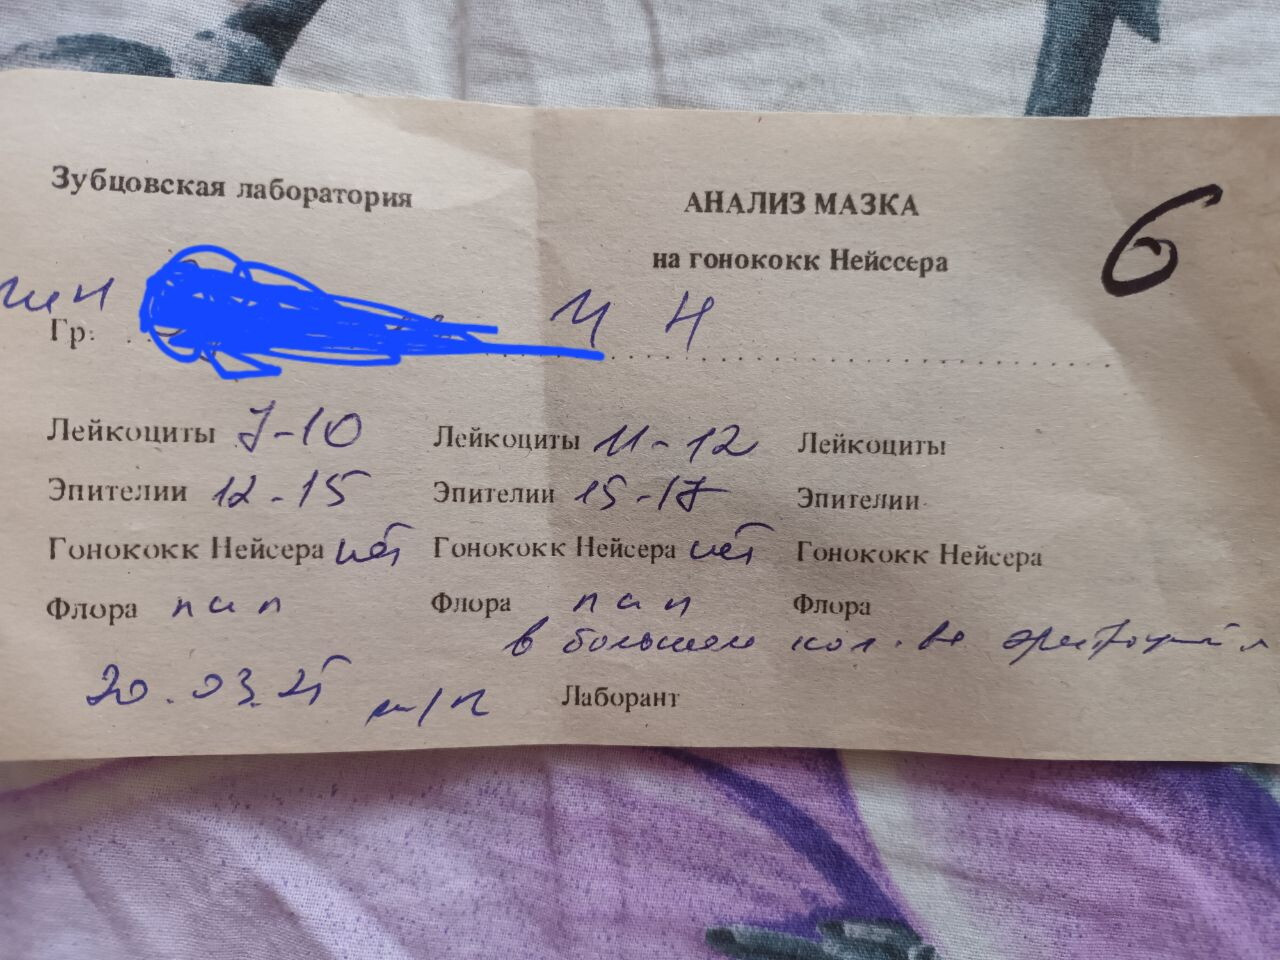 Зубцовская лаборатория
АНАЛИЗ МАЗКА
6
на гонококк Нейссера
Гр.
Лейкоциты 7-10 Лейкоциты 11-12 Лейкоциты
Эпителии 12-15 Эпителии 15-17 Эпителии
Гонококк Нейсера нет Гонококк Нейсера нет Гонококк Нейсера
Флора пап Флора пап Флора
в большом кол-ве эритроциты
20.03.25 Лаборант